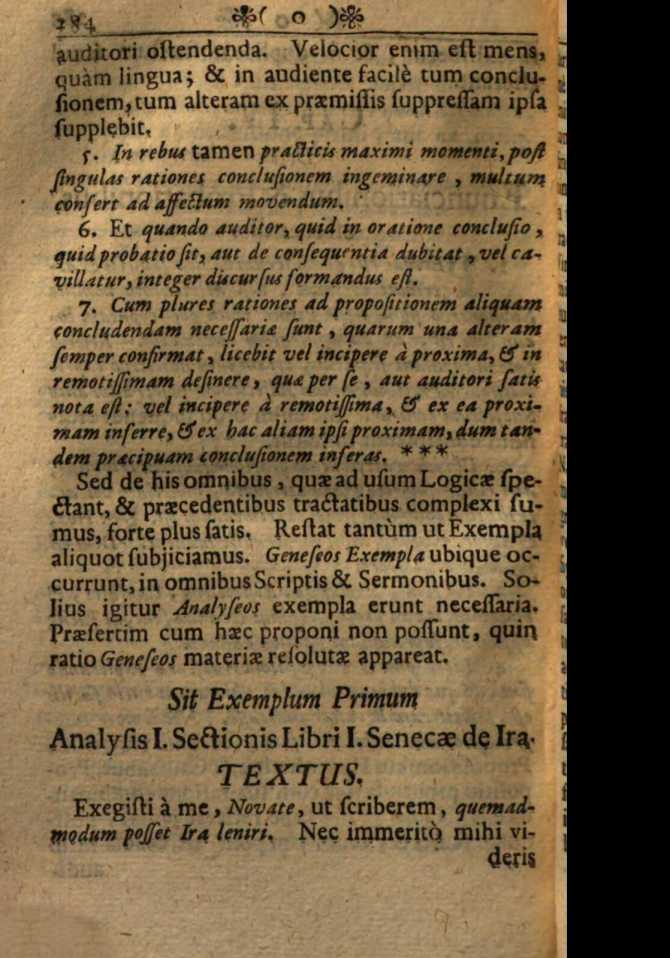 284 ( o )
auditori ostendenda. Velocior enim est mens,
quàm lingua; & in audiente facilè tum conclu-
sionem, tum alteram ex præmissis suppressam ipsa
supplebit.
5. In rebus tamen practicis maximi momenti, post
singulas rationes conclusionem ingeminare, multum
confert ad affectum movendum.
6. Et quando auditor, quid in oratione conclusio,
quid probatio sit, aut de consequentia dubitat, vel ca-
villatur, integer discursus formandus est.
7. Cum plures rationes ad propositionem aliquam
concludendam necessariæ sunt, quarum una alteram
semper confirmat, licebit vel incipere à proxima, & in
remotissimam desinere, quæ per se, aut auditori satis
nota est: vel incipere à remotissima, & ex ea proxi-
mam inferre, & ex hac aliam ipsi proximam, dum tan-
dem præcipuam conclusionem inferas. ***
Sed de his omnibus, quæ ad usum Logicæ spe-
ctant, & præcedentibus tractatibus complexi su-
mus, forte plus satis. Restat tantùm ut Exempla
aliquot subjiciamus. Geneseos Exempla ubique oc-
currunt, in omnibus Scriptis & Sermonibus. So-
lius igitur Analyseos exempla erunt necessaria.
Præsertim cum hæc proponi non possunt, quin
ratio Geneseos materiæ resolutæ appareat.
Sit Exemplum Primum
Analysis I. Sectionis Libri I. Senecæ de Ira.
TEXTUS.
Exegisti à me, Novate, ut scriberem, quemad-
modum posset Ira leniri. Nec immeritò mihi vi-
deris